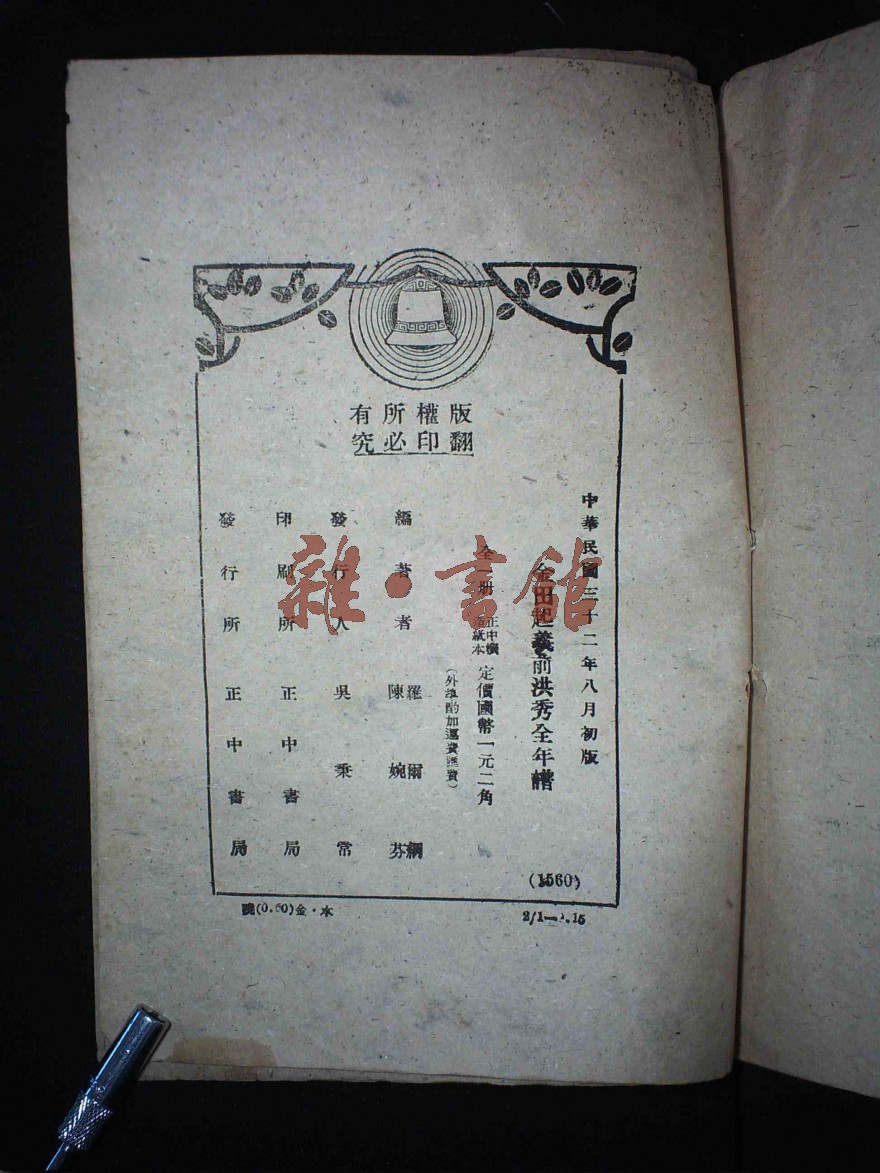 版權所有
翻印必究
中華民國三十二年八月初版
金田起義前洪秀全年譜
全一册 正中機造紙本 定價國幣一元二角
(外埠酌加運費匯費)
編著者 羅爾綱 陳婉芬
發行人 吳秉常
印刷所 正中書局
發行所 正中書局
(1560)
(0.60)金·本
2/1—
雜·書館